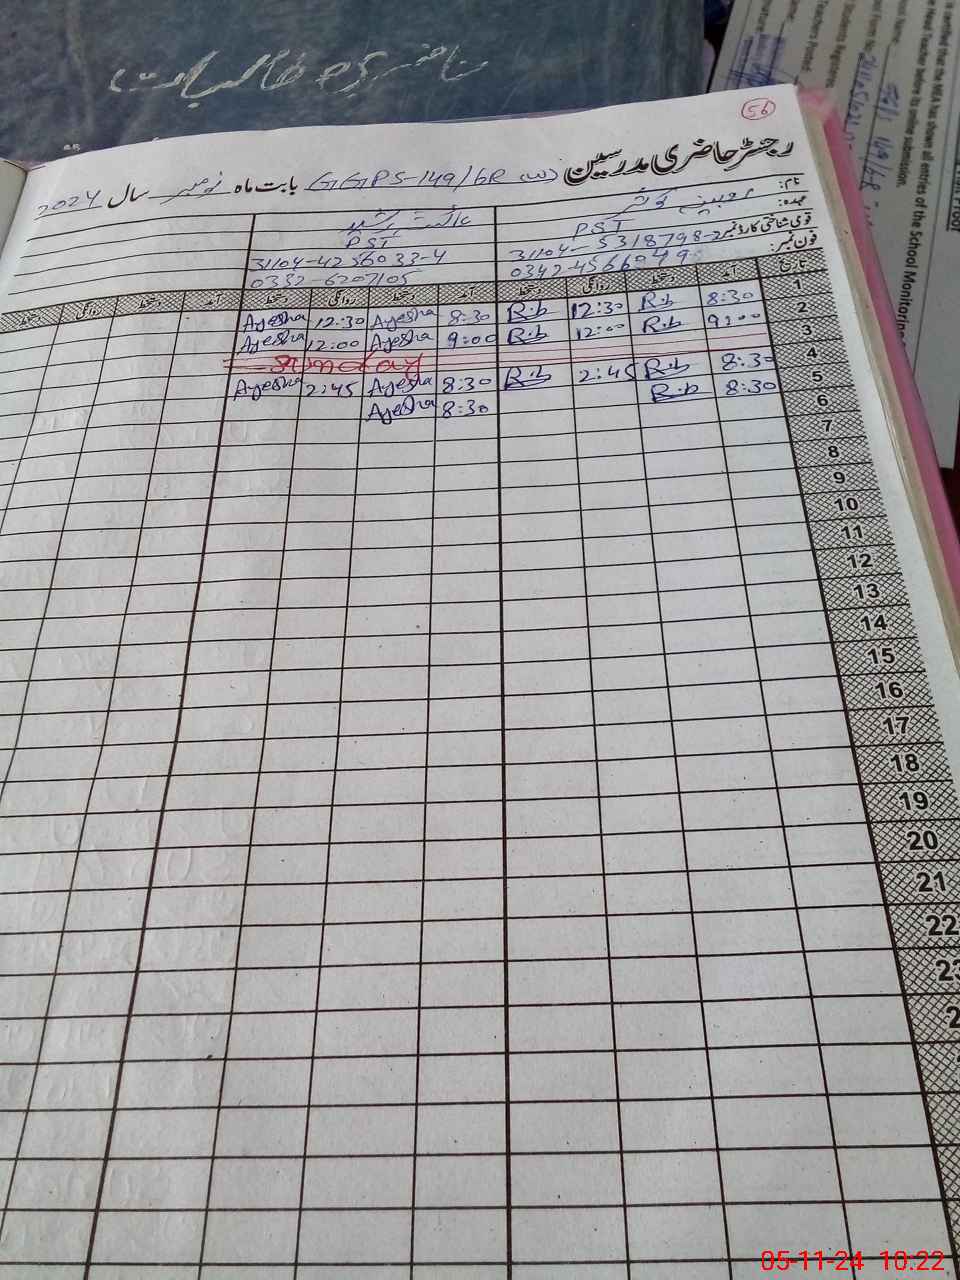 حاضری طالبات
56
رجسٹر حاضری مدرسین GGPS-149/6R (W) بابت ماہ نومبر سال 2024
نام: کوثر
عہدہ: PST PST
قومی شناختی کارڈ نمبر: 31104-5318798-2 31104-4256033-4
فون نمبر: 0342-4566949 0332-6207105
تاریخ آمد دستخط روانگی دستخط آمد دستخط روانگی دستخط آمد دستخط روانگی دستخط
1 8:30 R.b 12:30 R.b 8:30 Ayesha 12:30 Ayesha
2 9:00 R.b 12:00 R.b 9:00 Ayesha 12:00 Ayesha
3 Sunday
4 8:30 R.b 2:45 R.b 8:30 Ayesha 2:45 Ayesha
5 8:30 R.b 8:30 Ayesha
6
7
8
9
10
11
12
13
14
15
16
17
18
19
20
21
22
23
is certified that the MEA has shown all entries of the School Monitoring
Head Teacher before its online submission.
05-11-24 10:22